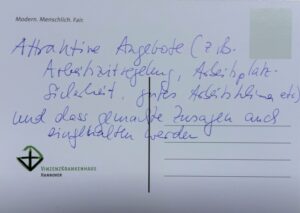 Modern. Menschlich. Fair.
Attraktive Angebote (z.B.
Arbeitszeitregelung, Arbeitsplatz-
Sicherheit, gutes Arbeitsklima etc)
und dass gemachte Zusagen auch
eingehalten werden
VINZENZKRANKENHAUS
HANNOVER